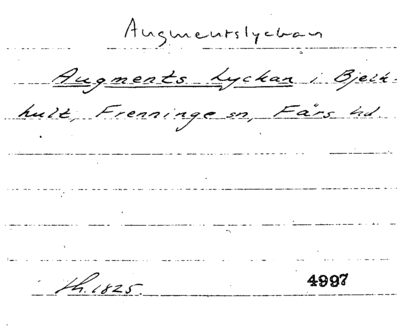 Augmentslyckan
Augments Lyckan i Bjelk-
hult, Frenninge sn, Färs hd.
th. 1825. 4997